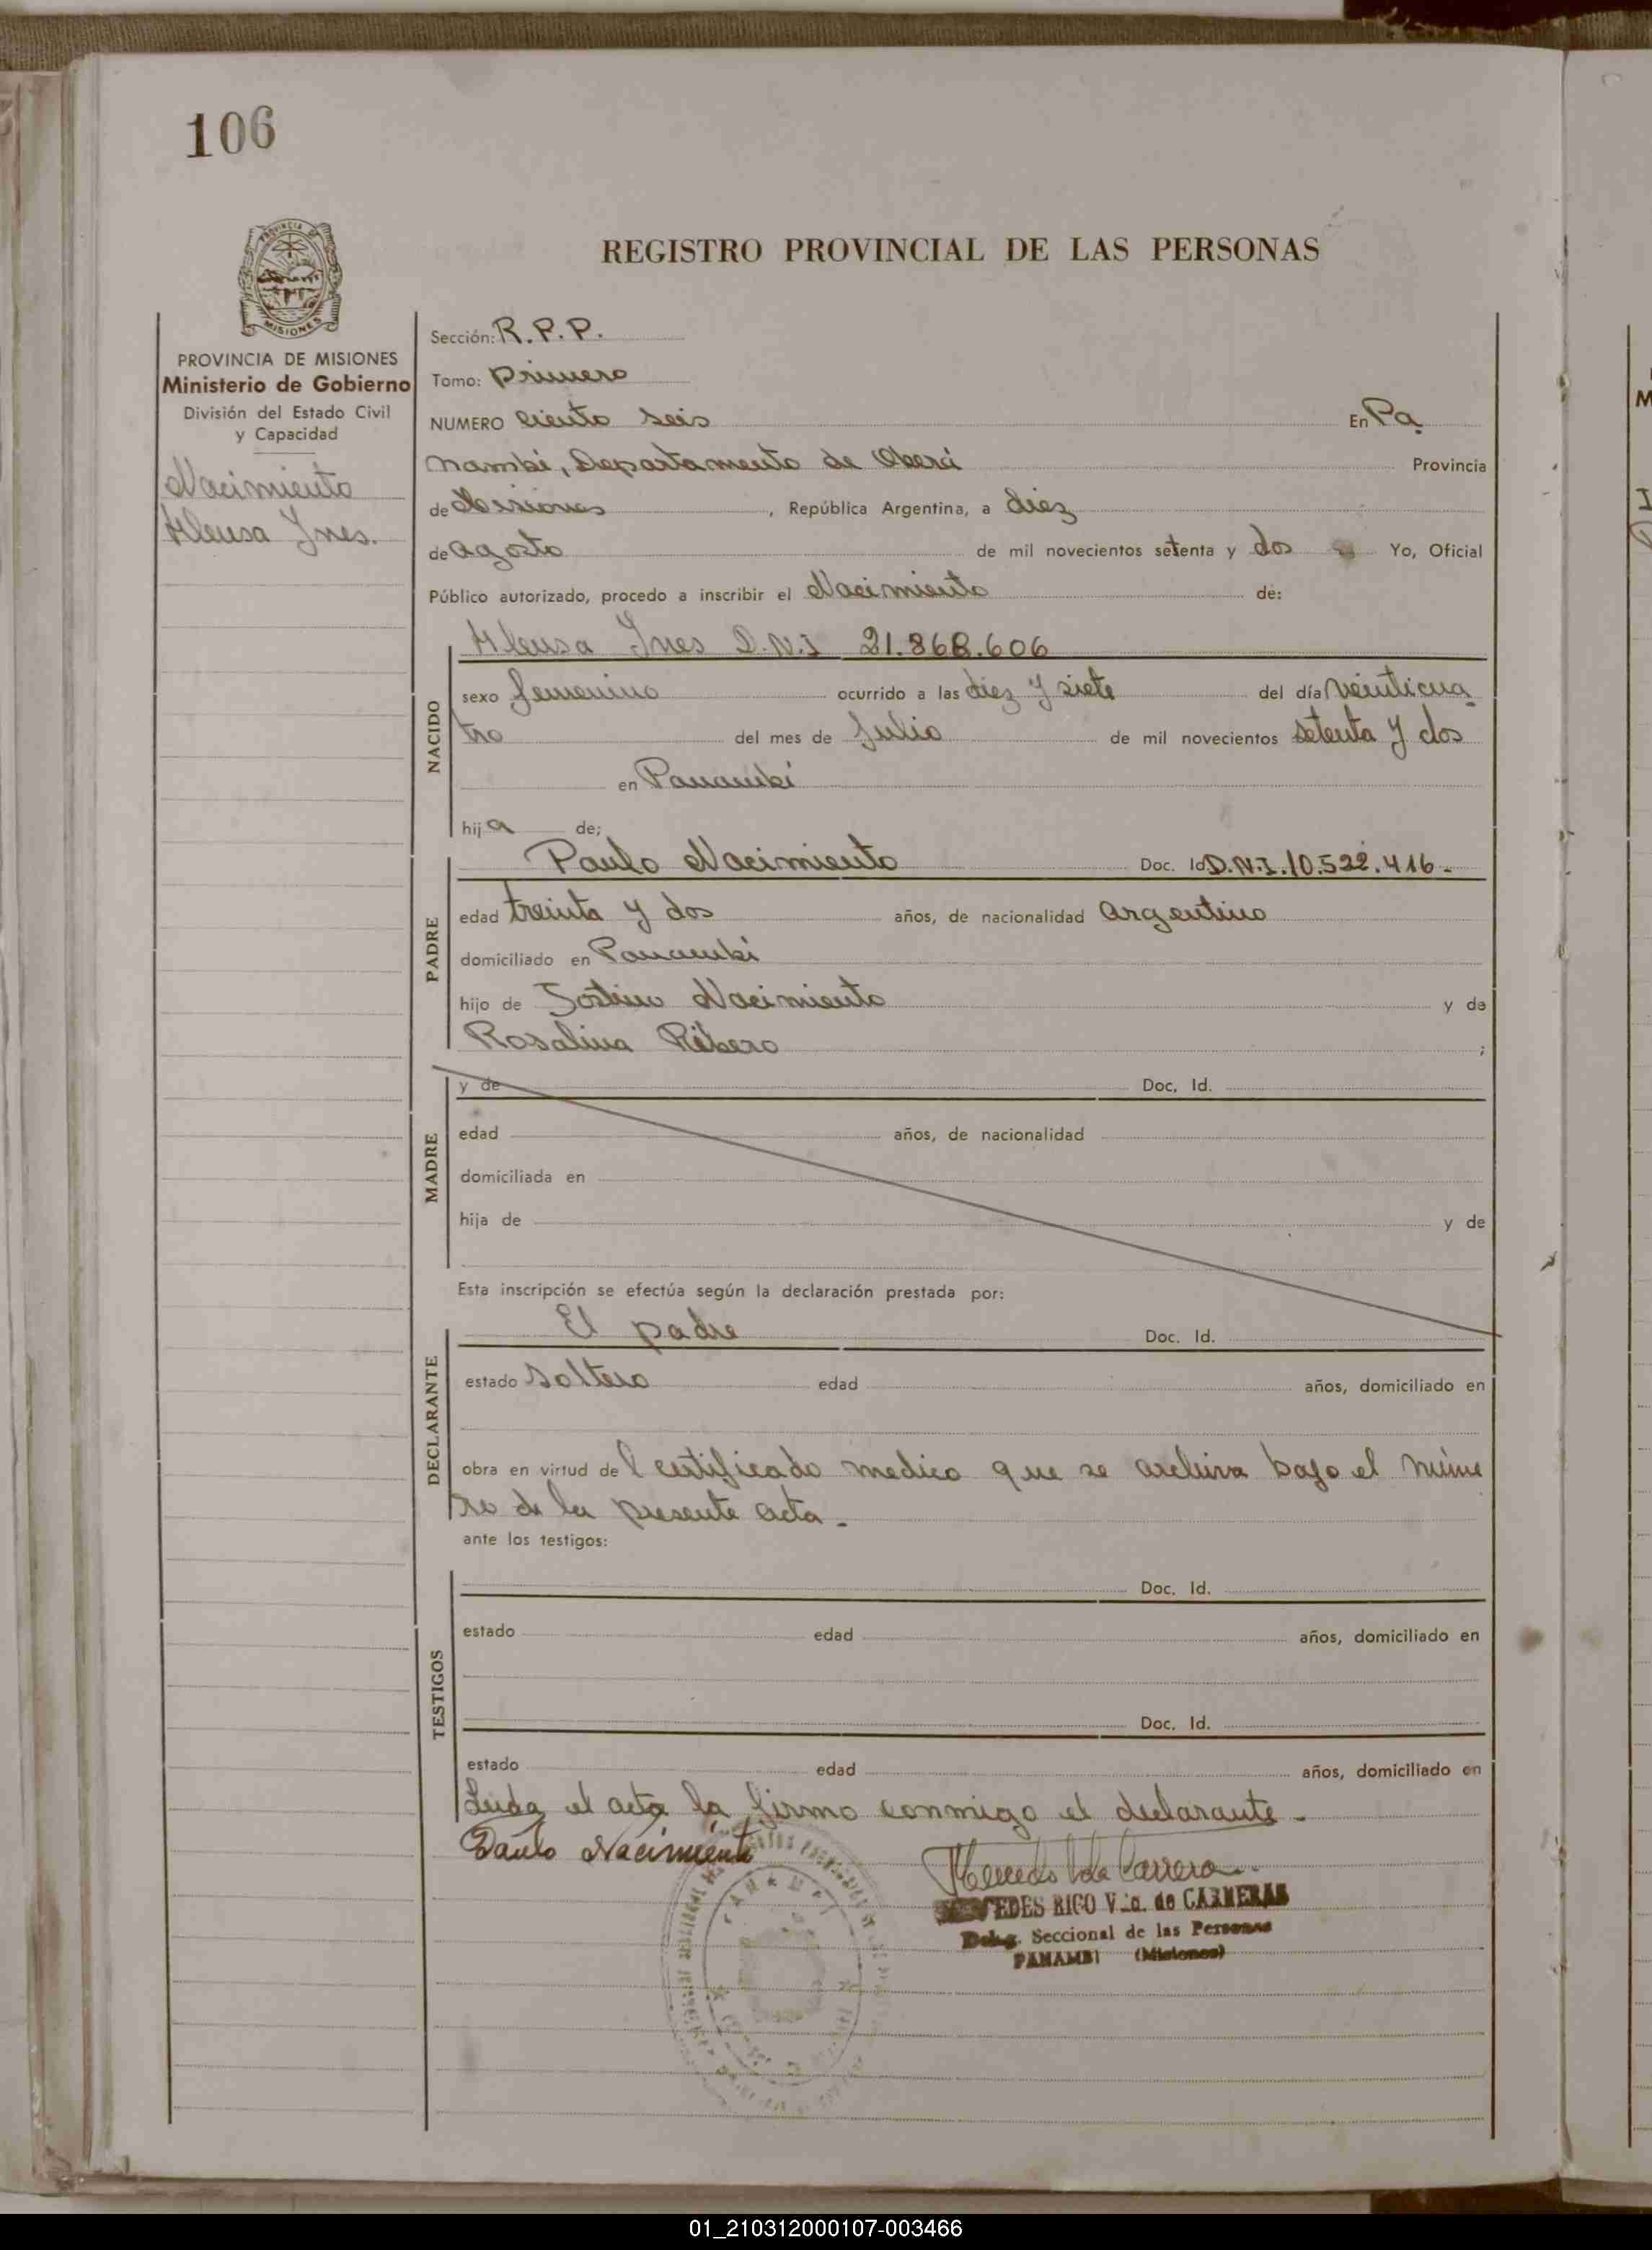 106
REGISTRO PROVINCIAL DE LAS PERSONAS
PROVINCIA DE MISIONES
Ministerio de Gobierno
División del Estado Civil
y Capacidad
Nacimiento
Ines.
Sección: R.P.P.
Tomo: primero
NUMERO ciento seis En Pa
nambi, Departamento de Oberá Provincia
de Misiones, República Argentina, a diez
de agosto de mil novecientos setenta y dos Yo, Oficial
Público autorizado, procedo a inscribir el Nacimiento de:
NACIDO
Ines D.N.I 21.868.606
sexo femenino ocurrido a las diez y siete del día veinticua
tro del mes de Julio de mil novecientos setenta y dos
en Panambí
hija de;
PADRE
Paulo Nacimiento Doc. Id D.N.I. 10.522.416.-
edad treinta y dos años, de nacionalidad argentino
domiciliado en Panambi
hijo de Nacimiento y de
Rosalina Ribero ;
MADRE
y de Doc. Id.
edad años, de nacionalidad
domiciliada en
hija de y de
Esta inscripción se efectúa según la declaración prestada por:
DECLARANTE
El padre Doc. Id.
estado soltero edad años, domiciliado en
obra en virtud del certificado medico que se archiva bajo el núme
ro de la presente acta.-
ante los testigos:
TESTIGOS
Doc. Id.
estado edad años, domiciliado en
Doc. Id.
estado edad años, domiciliado en
Leida el acta la firmo conmigo el declarante.-
Paulo Nacimiento
RICO V.a. de CARNERAS
Deleg. Seccional de las Personas
PANAMBI (Misiones)
01_210312000107-003466